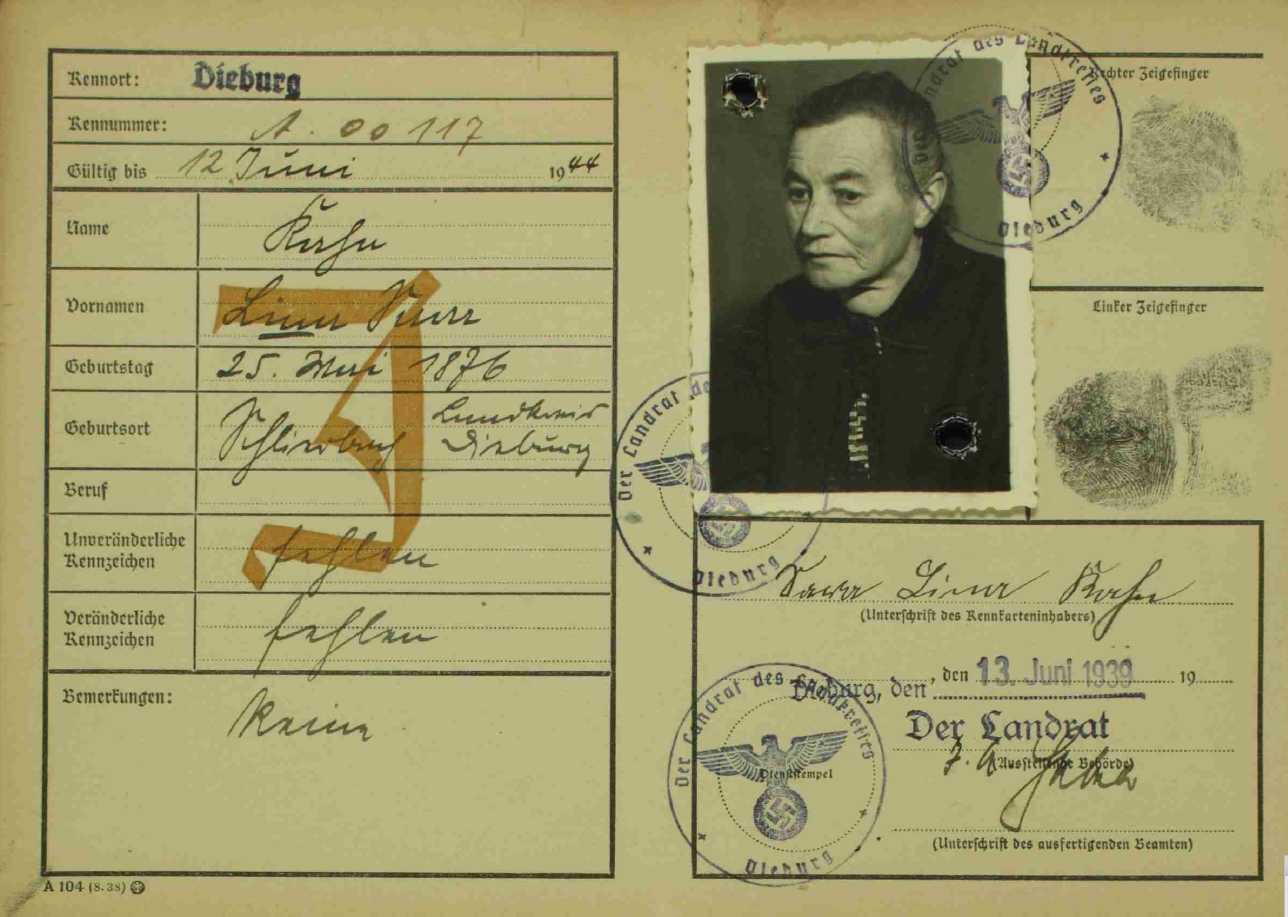 Kennort: Dieburg
Kennummer: A. 00117
Gültig bis 12 Juni 1944
Name Kahn
Vornamen Lina Sara
Geburtstag 25. Mai 1876
Geburtsort Schlierbach Landkreis Dieburg
Beruf
Unveränderliche Kennzeichen fehlen
Veränderliche Kennzeichen fehlen
Bemerkungen: Keine
J
A 104 (8. 38)
Der Landrat des Landkreises Dieburg
Rechter Zeigefinger
Linker Zeigefinger
Der Landrat des Dieburg
Sara Lina Kahn
(Unterschrift des Kennkarteninhabers)
Dieburg, den , den 13. Juni 1939 19
Der Landrat
(Ausstellende Behörde)
J. A.
Der Landrat des Landkreises Dieburg
Dienststempel
(Unterschrift des ausfertigenden Beamten)